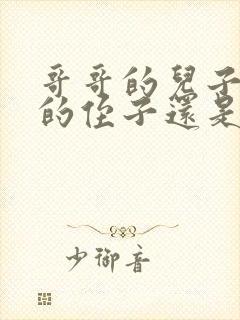 哥哥的兒子
的侄子還是
少御音